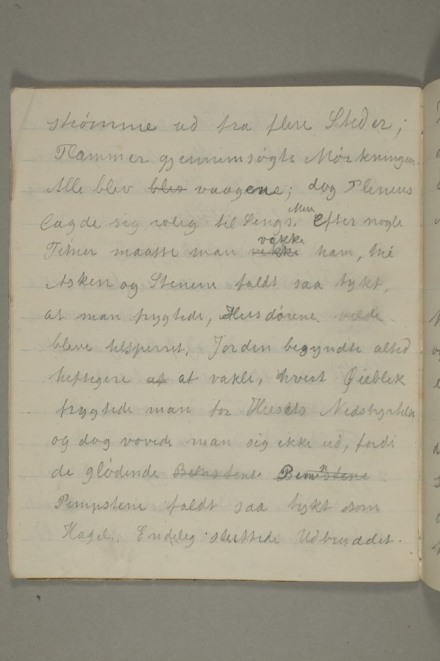 strömme ud fra flere Steder;
Flammer gjennemsøgte Mørkningen.
Alle blev blev vaagene; dog Plinius
lagde sig rolig til Sengs. Men efter nogle
Timer maatte man vække ham, thi
Asken og Stenene faldt saa tykt,
at man frygtede, Husdørene vilde
bleve tilsperret. Jorden begyndte altid
heftigere at vakle, hvert Øieblik
frygtede man for Husets Nedstyrtelse
og dog vovede man sig ikke ud, fordi
de glødende
Pimpstene faldt saa tykt som
Hagel. Endelig sluttede Udbruddet.